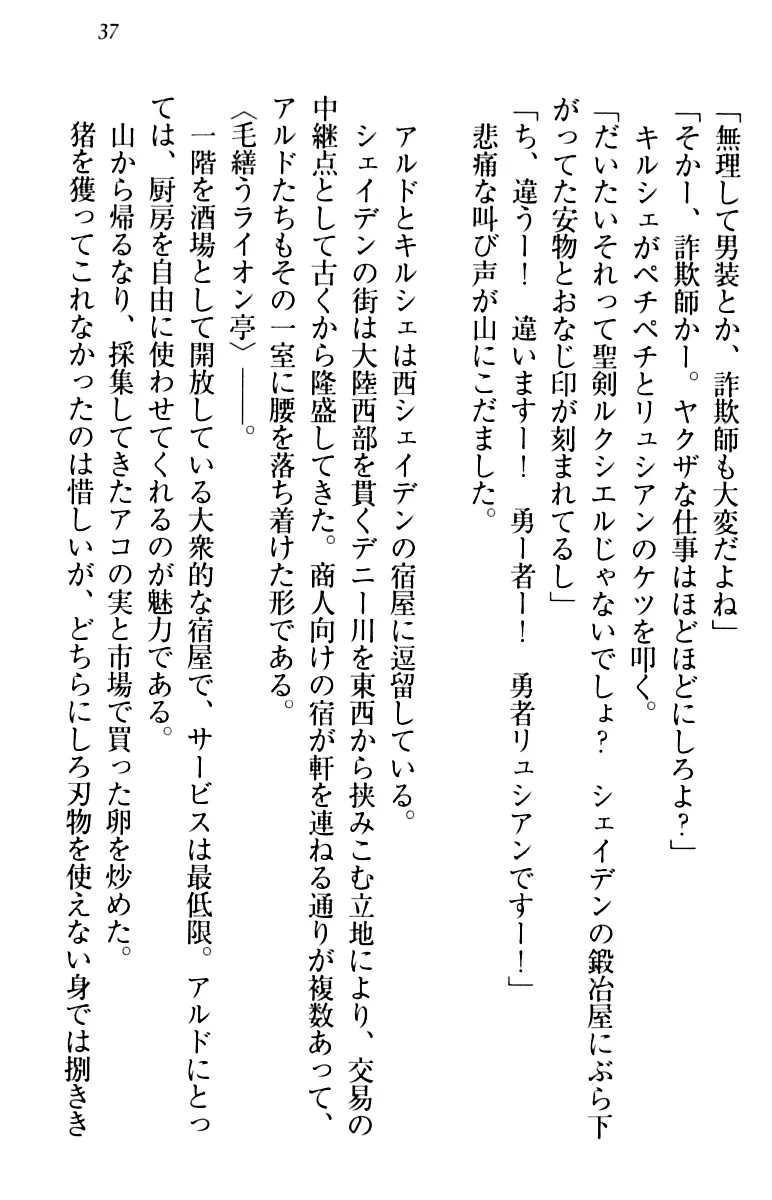 37
「無理して男装とか、詐欺師も大変だよね」
「そかー、詐欺師かー。ヤクザな仕事はほどほどにしろよ？」
キルシェがペチペチとリュシアンのケツを叩く。
「だいたいそれって聖剣ルクシエルじゃないでしょ？　シェイデンの鍛冶屋にぶら下
がってた安物とおなじ印が刻まれてるし」
「ち、違うー！　違いますー！　勇ー者ー！　勇者リュシアンですー！」
悲痛な叫び声が山にこだました。
アルドとキルシェは西シェイデンの宿屋に逗留している。
シェイデンの街は大陸西部を貫くデニー川を東西から挟みこむ立地により、交易の
中継点として古くから隆盛してきた。商人向けの宿が軒を連ねる通りが複数あって、
アルドたちもその一室に腰を落ち着けた形である。
〈毛繕うライオン亭〉――。
一階を酒場として開放している大衆的な宿屋で、サービスは最低限。アルドにとっ
ては、厨房を自由に使わせてくれるのが魅力である。
山から帰るなり、採集してきたアコの実と市場で買った卵を炒めた。
猪を獲ってこれなかったのは惜しいが、どちらにしろ刃物を使えない身では捌きき